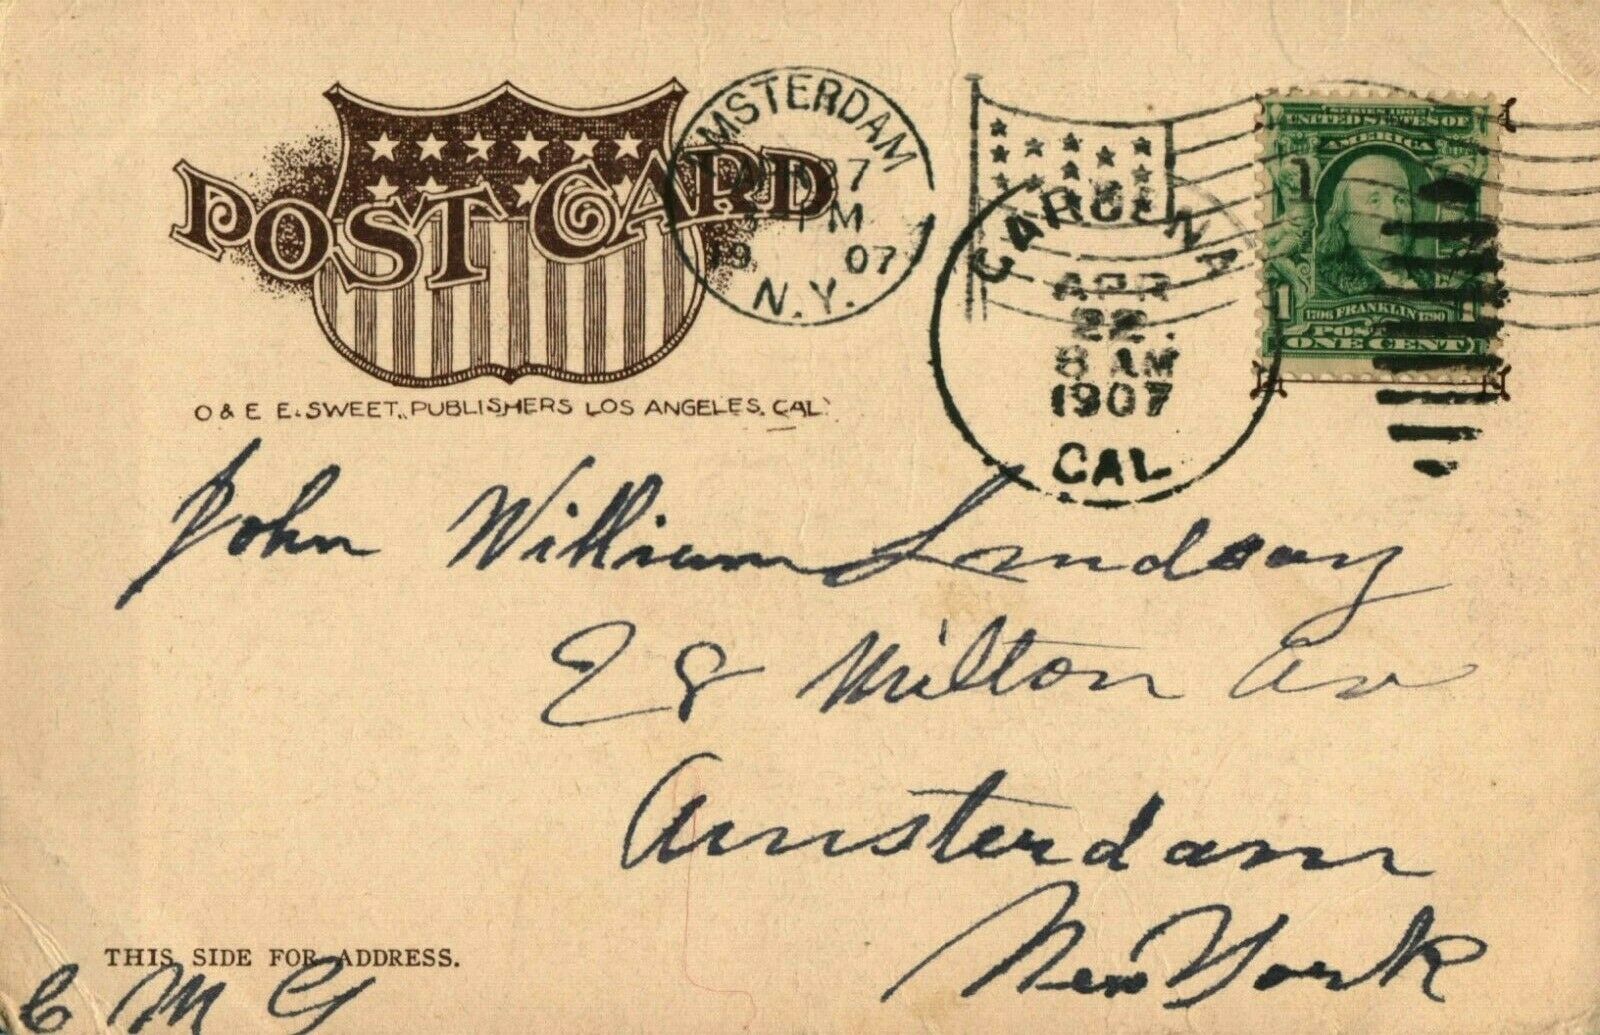 POST CARD
O & E E. SWEET., PUBLISHERS LOS ANGELES. CAL.
AMSTERDAM
27
PM
19 07
N.Y.
APR
22
8 AM
1907
CAL
SERIES
UNITED STATES OF
AMERICA
1
1706 FRANKLIN 1790
ONE CENT
John William Lindsay
28 Milton Av
Amsterdam
New York
THIS SIDE FOR ADDRESS.
C M G